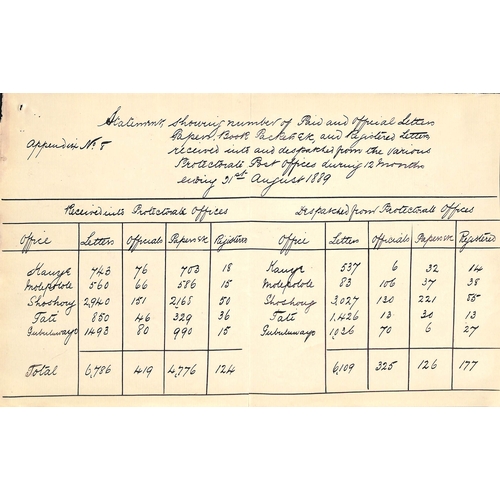 Statement, showing number of Paid and Official Letters
Papers, Book Packets &c, and Registered Letters
Appendix No 5
received into and despatched from the various
Protectorate Post Offices during 12 Months
ending 31st August 1889
Received into Protectorate Offices Despatched from Protectorate Offices
Office Letters Officials Papers &c Registered Office Letters Officials Papers &c Registered
Kanye 743 76 703 18 Kanye 537 6 32 14
Molepolole 560 66 586 15 Molepolole 83 106 37 38
Shoshong 2,940 151 2168 50 Shoshong 3,027 130 221 85
Tati 850 46 329 36 Tati 1,426 13 30 13
Gubuluwayo 1493 80 990 15 Gubuluwayo 1,036 70 6 27
Total 6,786 419 4,776 124 6,109 325 126 177